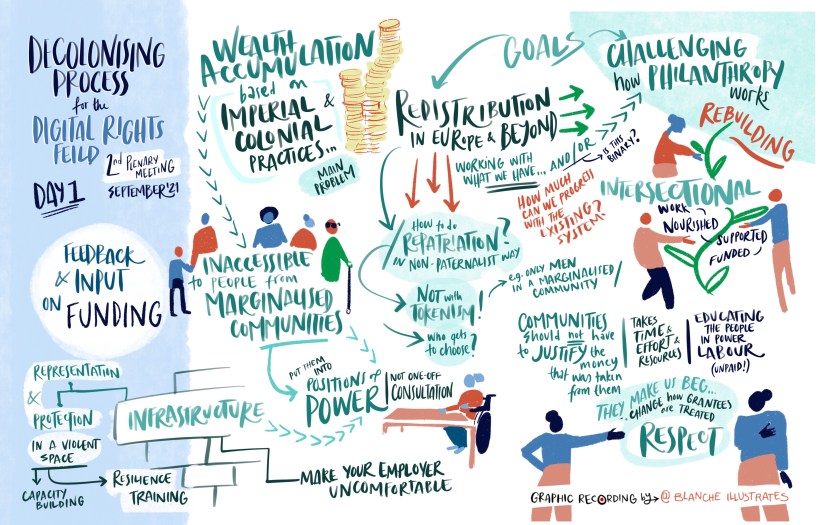 DECOLONISING
PROCESS
for the
DIGITAL RIGHTS
FEILD
2nd PLENARY
MEETING
DAY 1
SEPTEMBER '21
FEEDBACK
& INPUT
ON FUNDING
WEALTH
ACCUMULATION
based on
IMPERIAL &
COLONIAL
PRACTICES...
MAIN
PROBLEM
INACCESSIBLE
to PEOPLE from
MARGINALISED
COMMUNITIES
PUT THEM
INTO
POSITIONS of
POWER
NOT ONE-OFF
CONSULTATION
REPRESENTATION
&
PROTECTION
IN A VIOLENT
SPACE
CAPACITY
BUILDING
RESILIENCE
TRAINING
INFRASTRUCTURE
MAKE YOUR EMPLOYER
UNCOMFORTABLE
GOALS
REDISTRIBUTION
IN EUROPE & BEYOND
WORKING WITH
WHAT WE HAVE... AND/OR
IS THIS
BINARY?
HOW MUCH
CAN WE PROGRESS
WITH THE
EXISTING
SYSTEM?
HOW to do
REPATRIATION?
IN NON-PATERNALIST WAY
NOT with
TOKENISM!
e.g. ONLY MEN
IN A MARGINALISED
COMMUNITY
who gets
to choose?
CHALLENGING
how PHILANTHROPY
works
REBUILDING
INTERSECTIONAL
WORK
NOURISHED
SUPPORTED
FUNDED
COMMUNITIES
should not have
to JUSTIFY the
money
that was taken
from them
TAKES
TIME &
EFFORT &
RESOURCES
EDUCATING
THE PEOPLE
IN POWER
LABOUR
(UNPAID!)
THEY MAKE US BEG...
CHANGE how GRANTEES
are TREATED
RESPECT
GRAPHIC RECORDING by → @ BLANCHE ILLUSTRATES